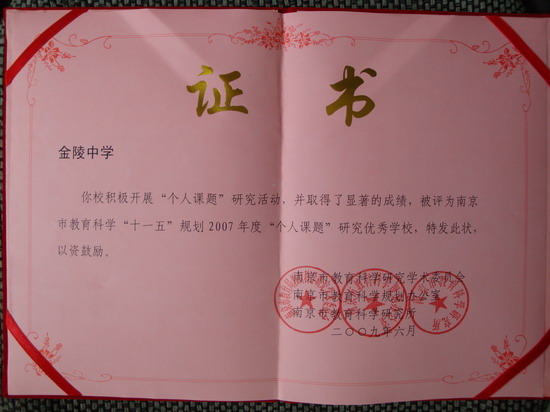 证 书
金陵中学
你校积极开展“个人课题”研究活动，并取得了显著的成绩，被评为南京
市教育科学“十一五”规划2007年度“个人课题”研究优秀学校，特发此状，
以资鼓励。
南京市教育科学研究学术委员会
南京市教育科学规划办公室
南京市教育科学研究所
二〇〇九年六月